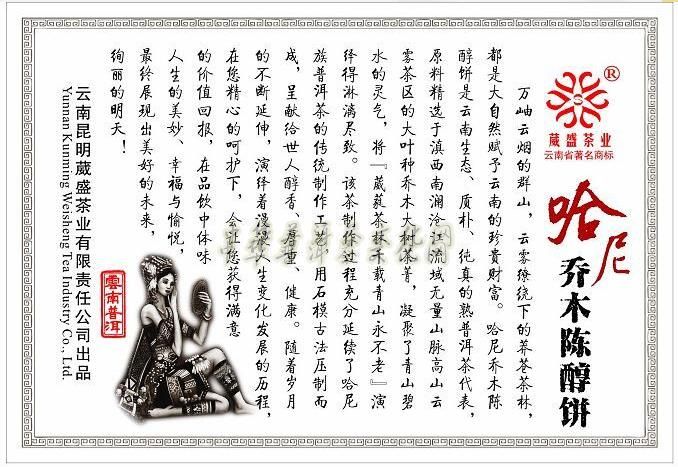 ®
葳盛茶业
云南省著名商标
哈尼
乔木陈醇饼
万岫云烟的群山，云雾缭绕下的莽苍茶林，
都是大自然赋予云南的珍贵财富。哈尼乔木陈
醇饼是云南生态、质朴、纯真的熟普洱茶代表，
原料精选于滇西南澜沧江流域无量山脉高山云
雾茶区的大叶种乔木大树茶菁，凝聚了青山碧
水的灵气，将『葳蕤茶林千载青山永不老』演
绎得淋漓尽致。该茶制作过程充分延续了哈尼
族普洱茶的传统制作工艺，用石模古法压制而
成，呈献给世人醇香、厚重、健康。随着岁月
的不断延伸，演绎着漫漫人生变化发展的历程，
在您精心的呵护下，会让您获得满意
的价值回报，在品饮中体味
人生的美妙、幸福与愉悦，
最终展现出美好的未来，
绚丽的明天！
雲南普洱
云南昆明葳盛茶业有限责任公司出品
Yunnan Kunming Weisheng Tea Industry Co., Ltd.